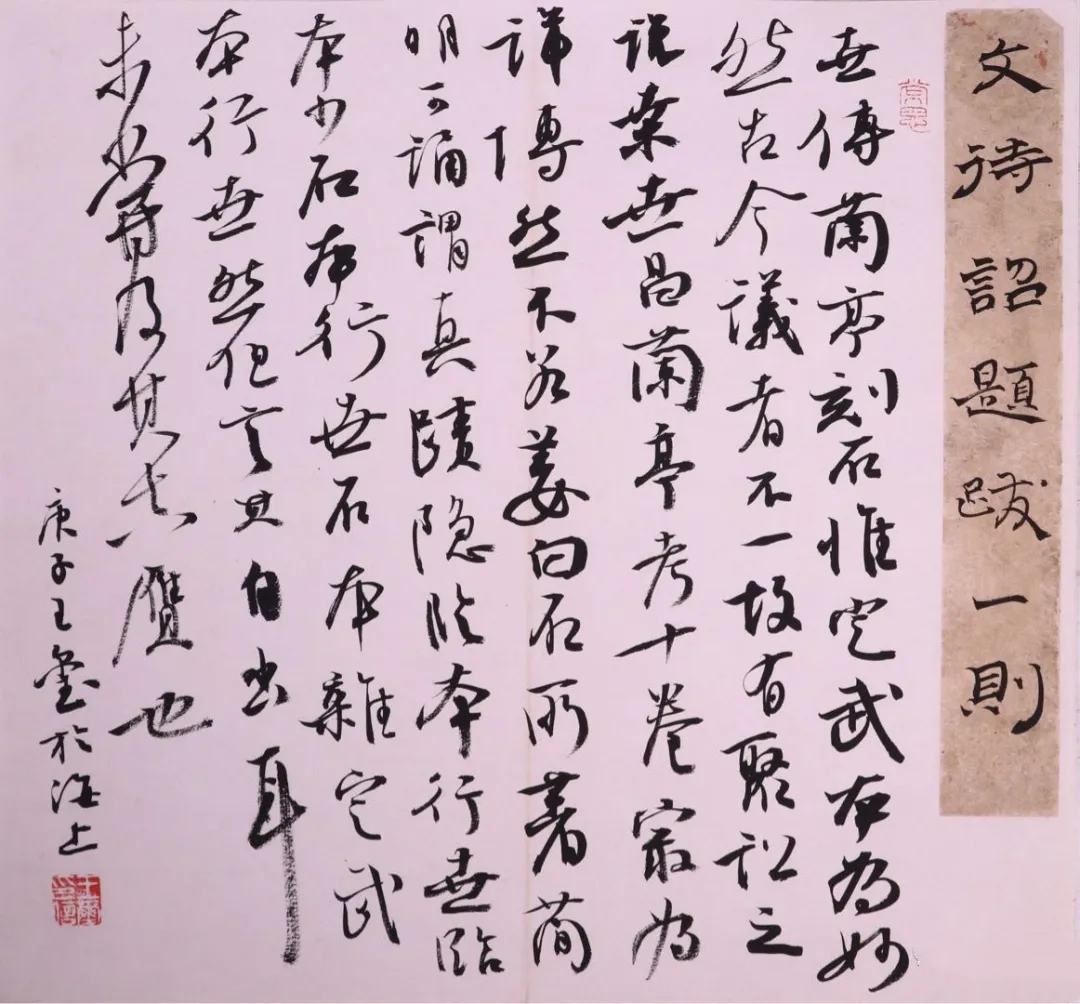 文待詔題跋一則
世傳蘭亭刻石惟定武本為妙
然古今議者不一故有聚訟之
說桒世昌蘭亭考十卷最為
詳博然不若姜白石所著簡
明可誦謂真蹟隐臨本行世臨
本少石本行世石本雜定武
本行世然但言其自出耳
未嘗及其真贋也
庚子王於海上